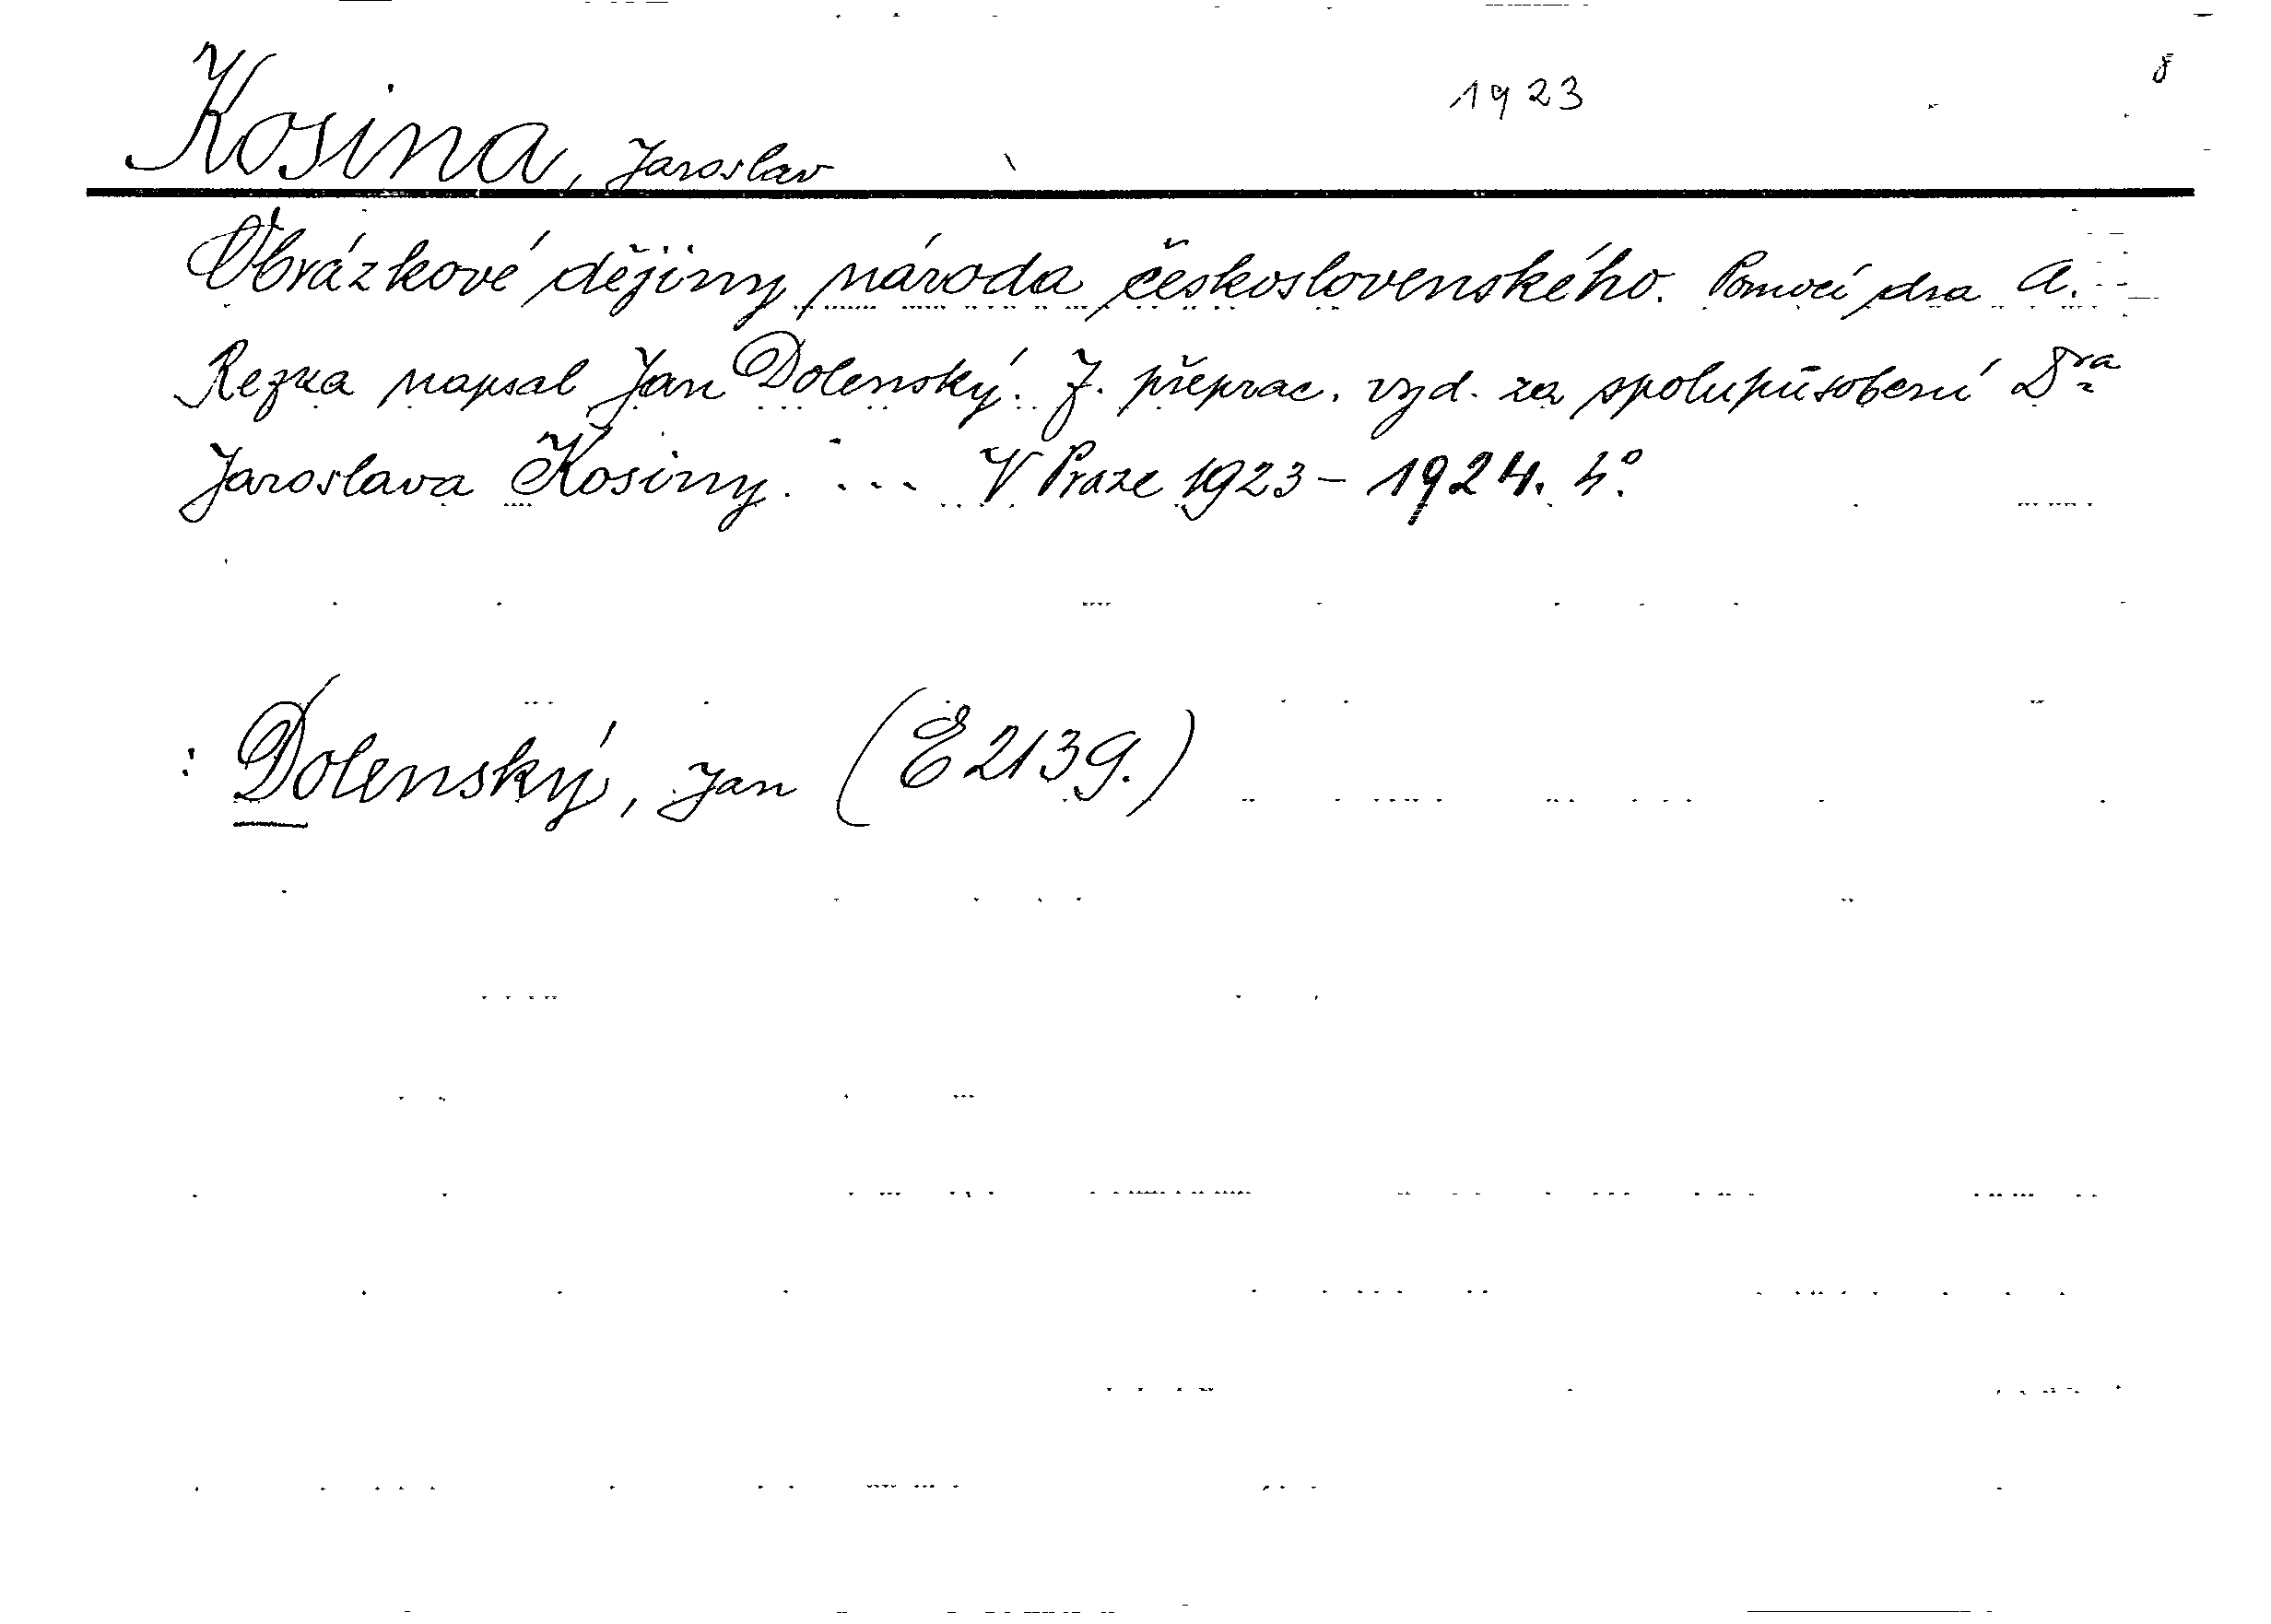 1923
8
Kosina, Jaroslav
Obrázkové dějiny národa československého. Pomocí dra A.
Rezka napsal Jan Dolenský. 7. přeprac. vyd. za spolupůsobení Dra
Jaroslava Kosiny. ... V Praze 1923-1924. 4°.
: Dolenský, Jan (E 2139.)